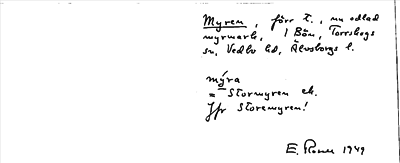 Myren, förr t., nu odlad
myrmark, i Bön, Torrskogs
sn, Vedbo hd, Älvsborgs l.
mýra
= Stormyren ek.
Jfr Storemyren!
E. 1949